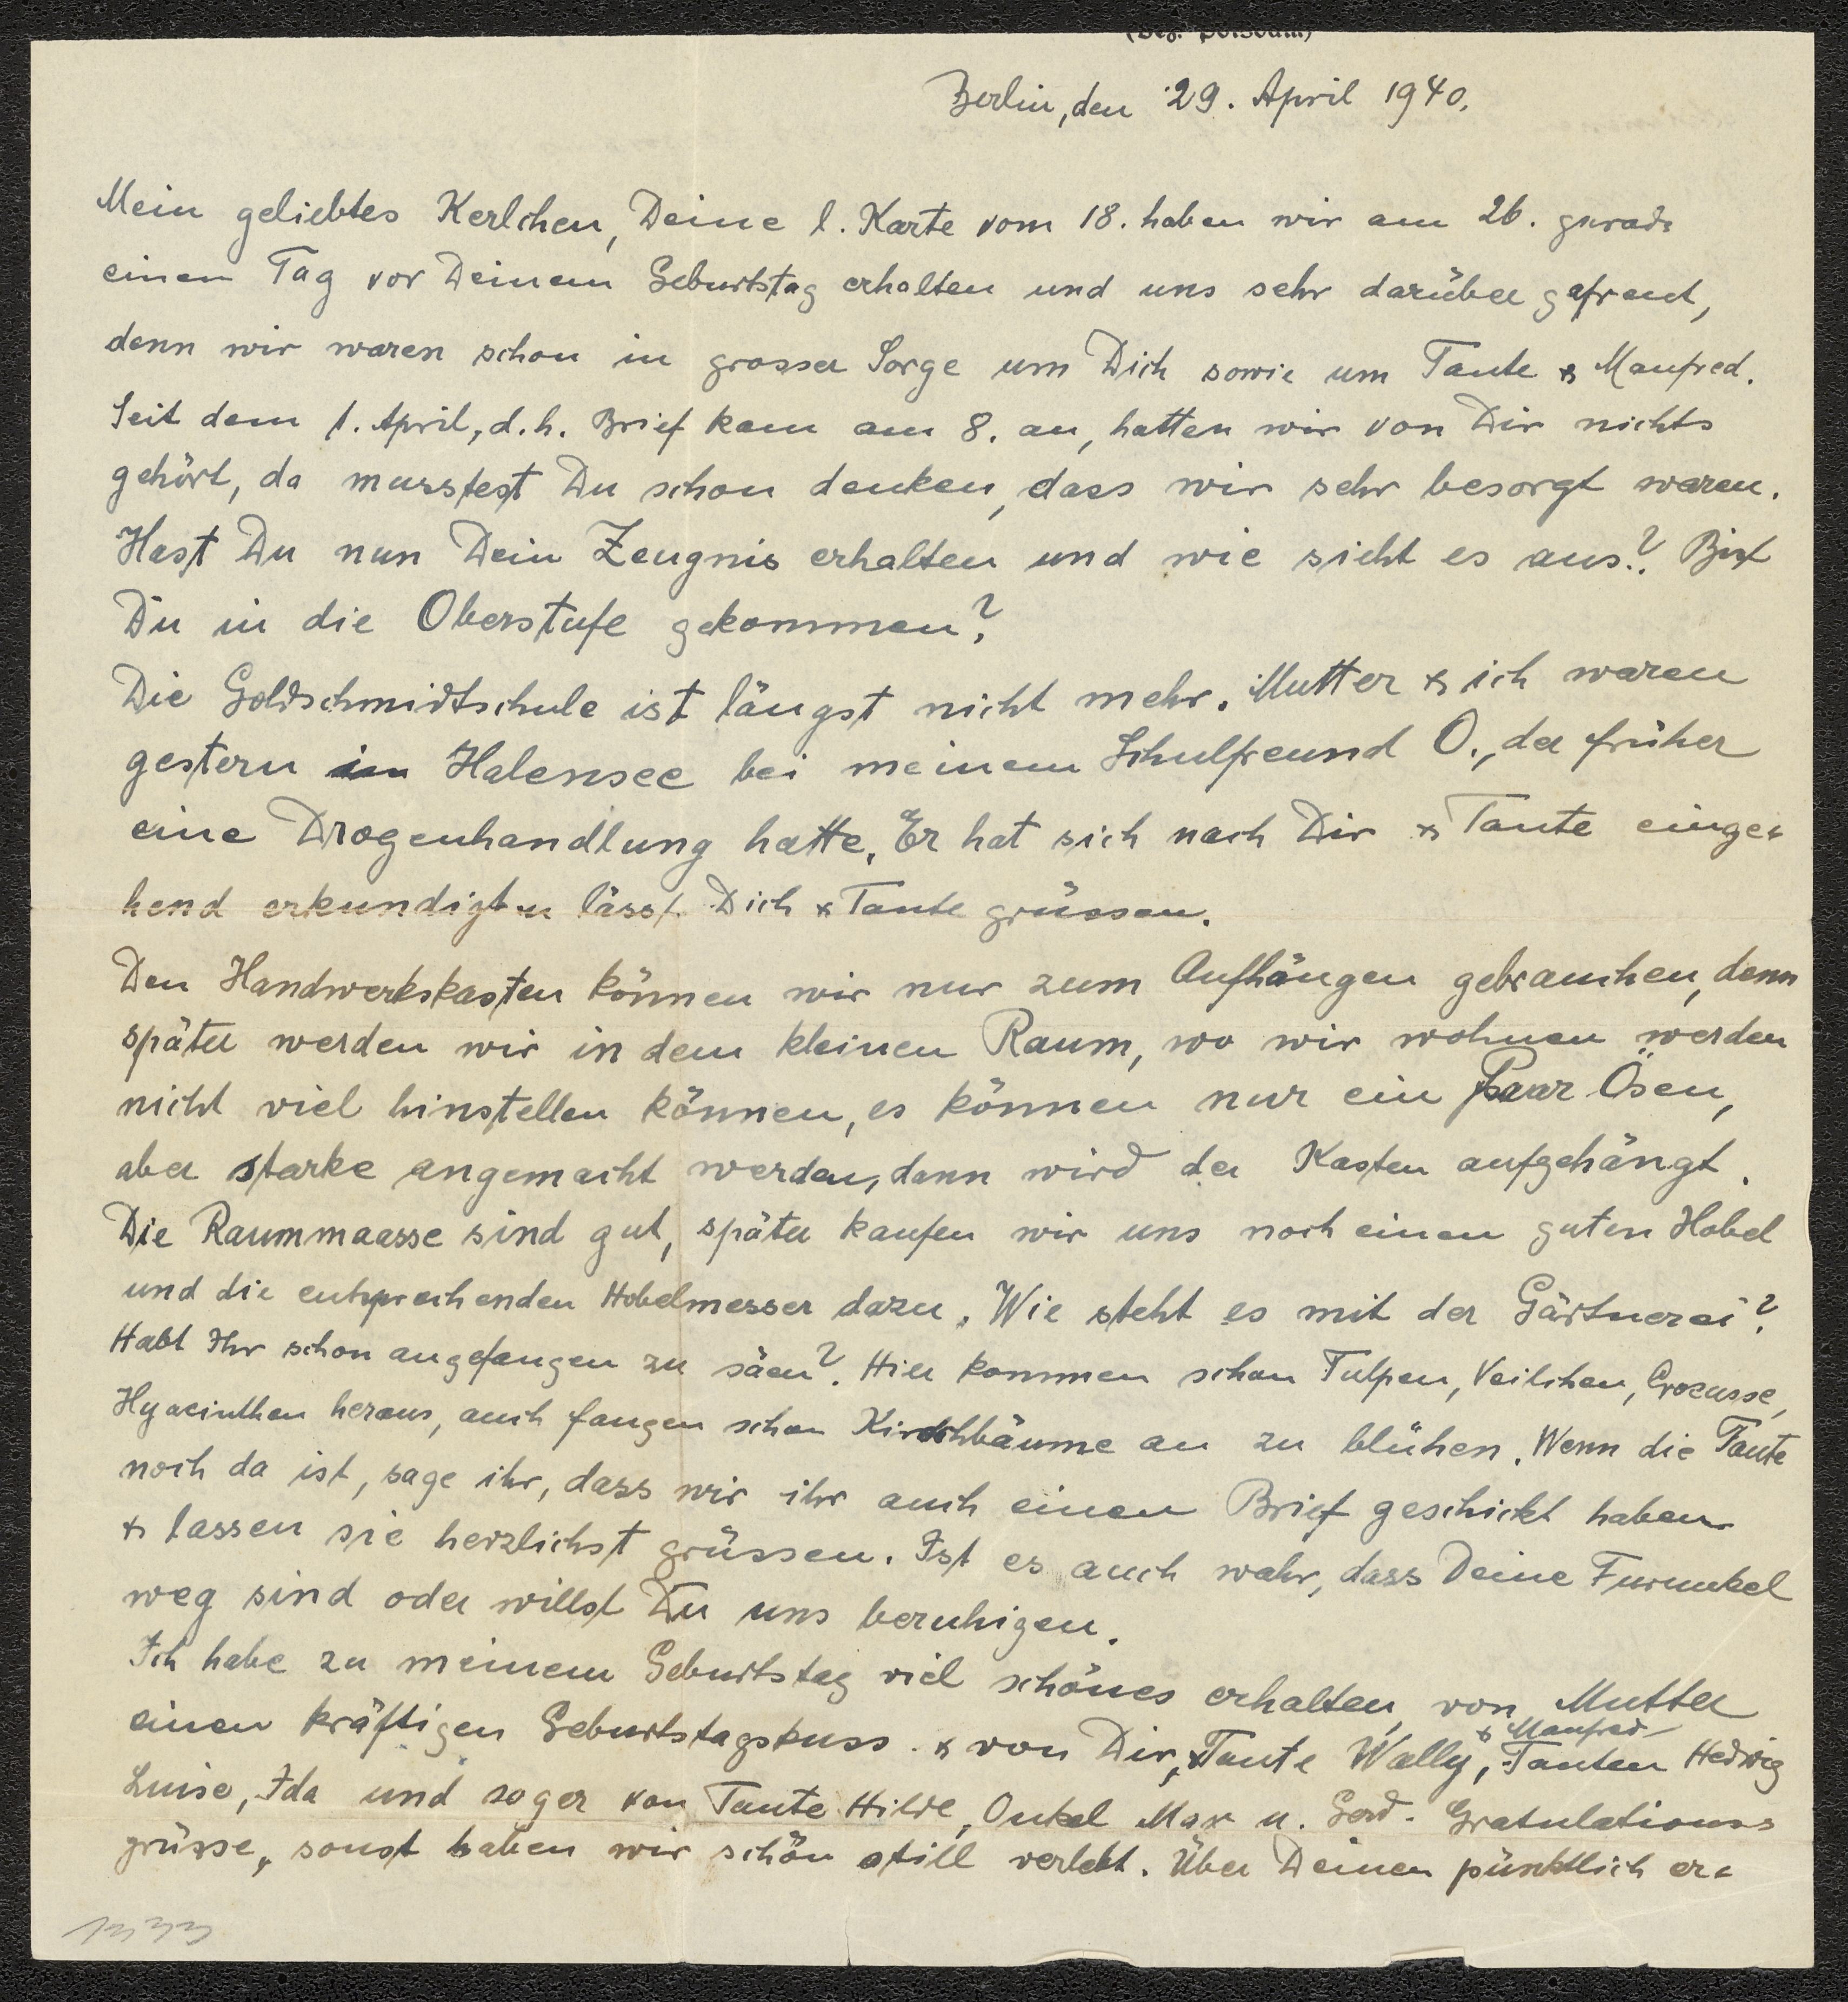 (Bez. Potsdam)
Berlin, den 29. April 1940.
Mein geliebtes Kerlchen, Deine l. Karte vom 18. haben wir am 26. gerade
einen Tag vor Deinem Geburtstag erhalten und uns sehr darüber gefreut,
denn wir waren schon in grosser Sorge um Dich sowie um Tante & Manfred.
Seit dem 1. April, d. h. Brief kam am 8. an, hatten wir von Dir nichts
gehört, da musstest Du schon denken, dass wir sehr besorgt waren.
Hast Du nun Dein Zeugnis erhalten und wie sieht es aus? Bist
Du in die Oberstufe gekommen?
Die Goldschmidtschule ist längst nicht mehr. Mutter & ich waren
gestern in Halensee bei meinem Schulfreund O., der früher
eine Drogenhandlung hatte. Er hat sich nach Dir & Tante einge-
hend erkundigt u lässt Dich & Tante grüssen.
Den Handwerkskasten können wir nur zum Aufhängen gebrauchen, denn
später werden wir in dem kleinen Raum, wo wir wohnen werden
nicht viel hinstellen können, es können nur ein Paar Ösen,
aber starke angemacht werden, dann wird der Kasten aufgehängt.
Die Raummaasse sind gut, später kaufen wir uns noch einen guten Hobel
und die entsprechenden Hobelmesser dazu. Wie steht es mit der Gärtnerei?
Habt Ihr schon angefangen zu säen? Hier kommen schon Tulpen, Veilchen, Crocusse,
Hyacinthen heraus, auch fangen schon Kirschbäume an zu blühen. Wenn die Tante
noch da ist, sage ihr, dass wir ihr auch einen Brief geschickt haben
& lassen sie herzlichst grüssen. Ist es auch wahr, dass Deine Furunkel
weg sind oder willst Du uns beruhigen.
Ich habe zu meinem Geburtstag viel schönes erhalten, von Mutter
& Manfred
einen kräftigen Geburtstagskuss & von Dir, Tante Wally, Tanten Hedwig
Luise, Ida und sogar von Tante Hilde, Onkel Max u. Gerd. Gratulations-
grüsse, sonst haben wir schön still verlebt. Über Deinen pünktlich er-